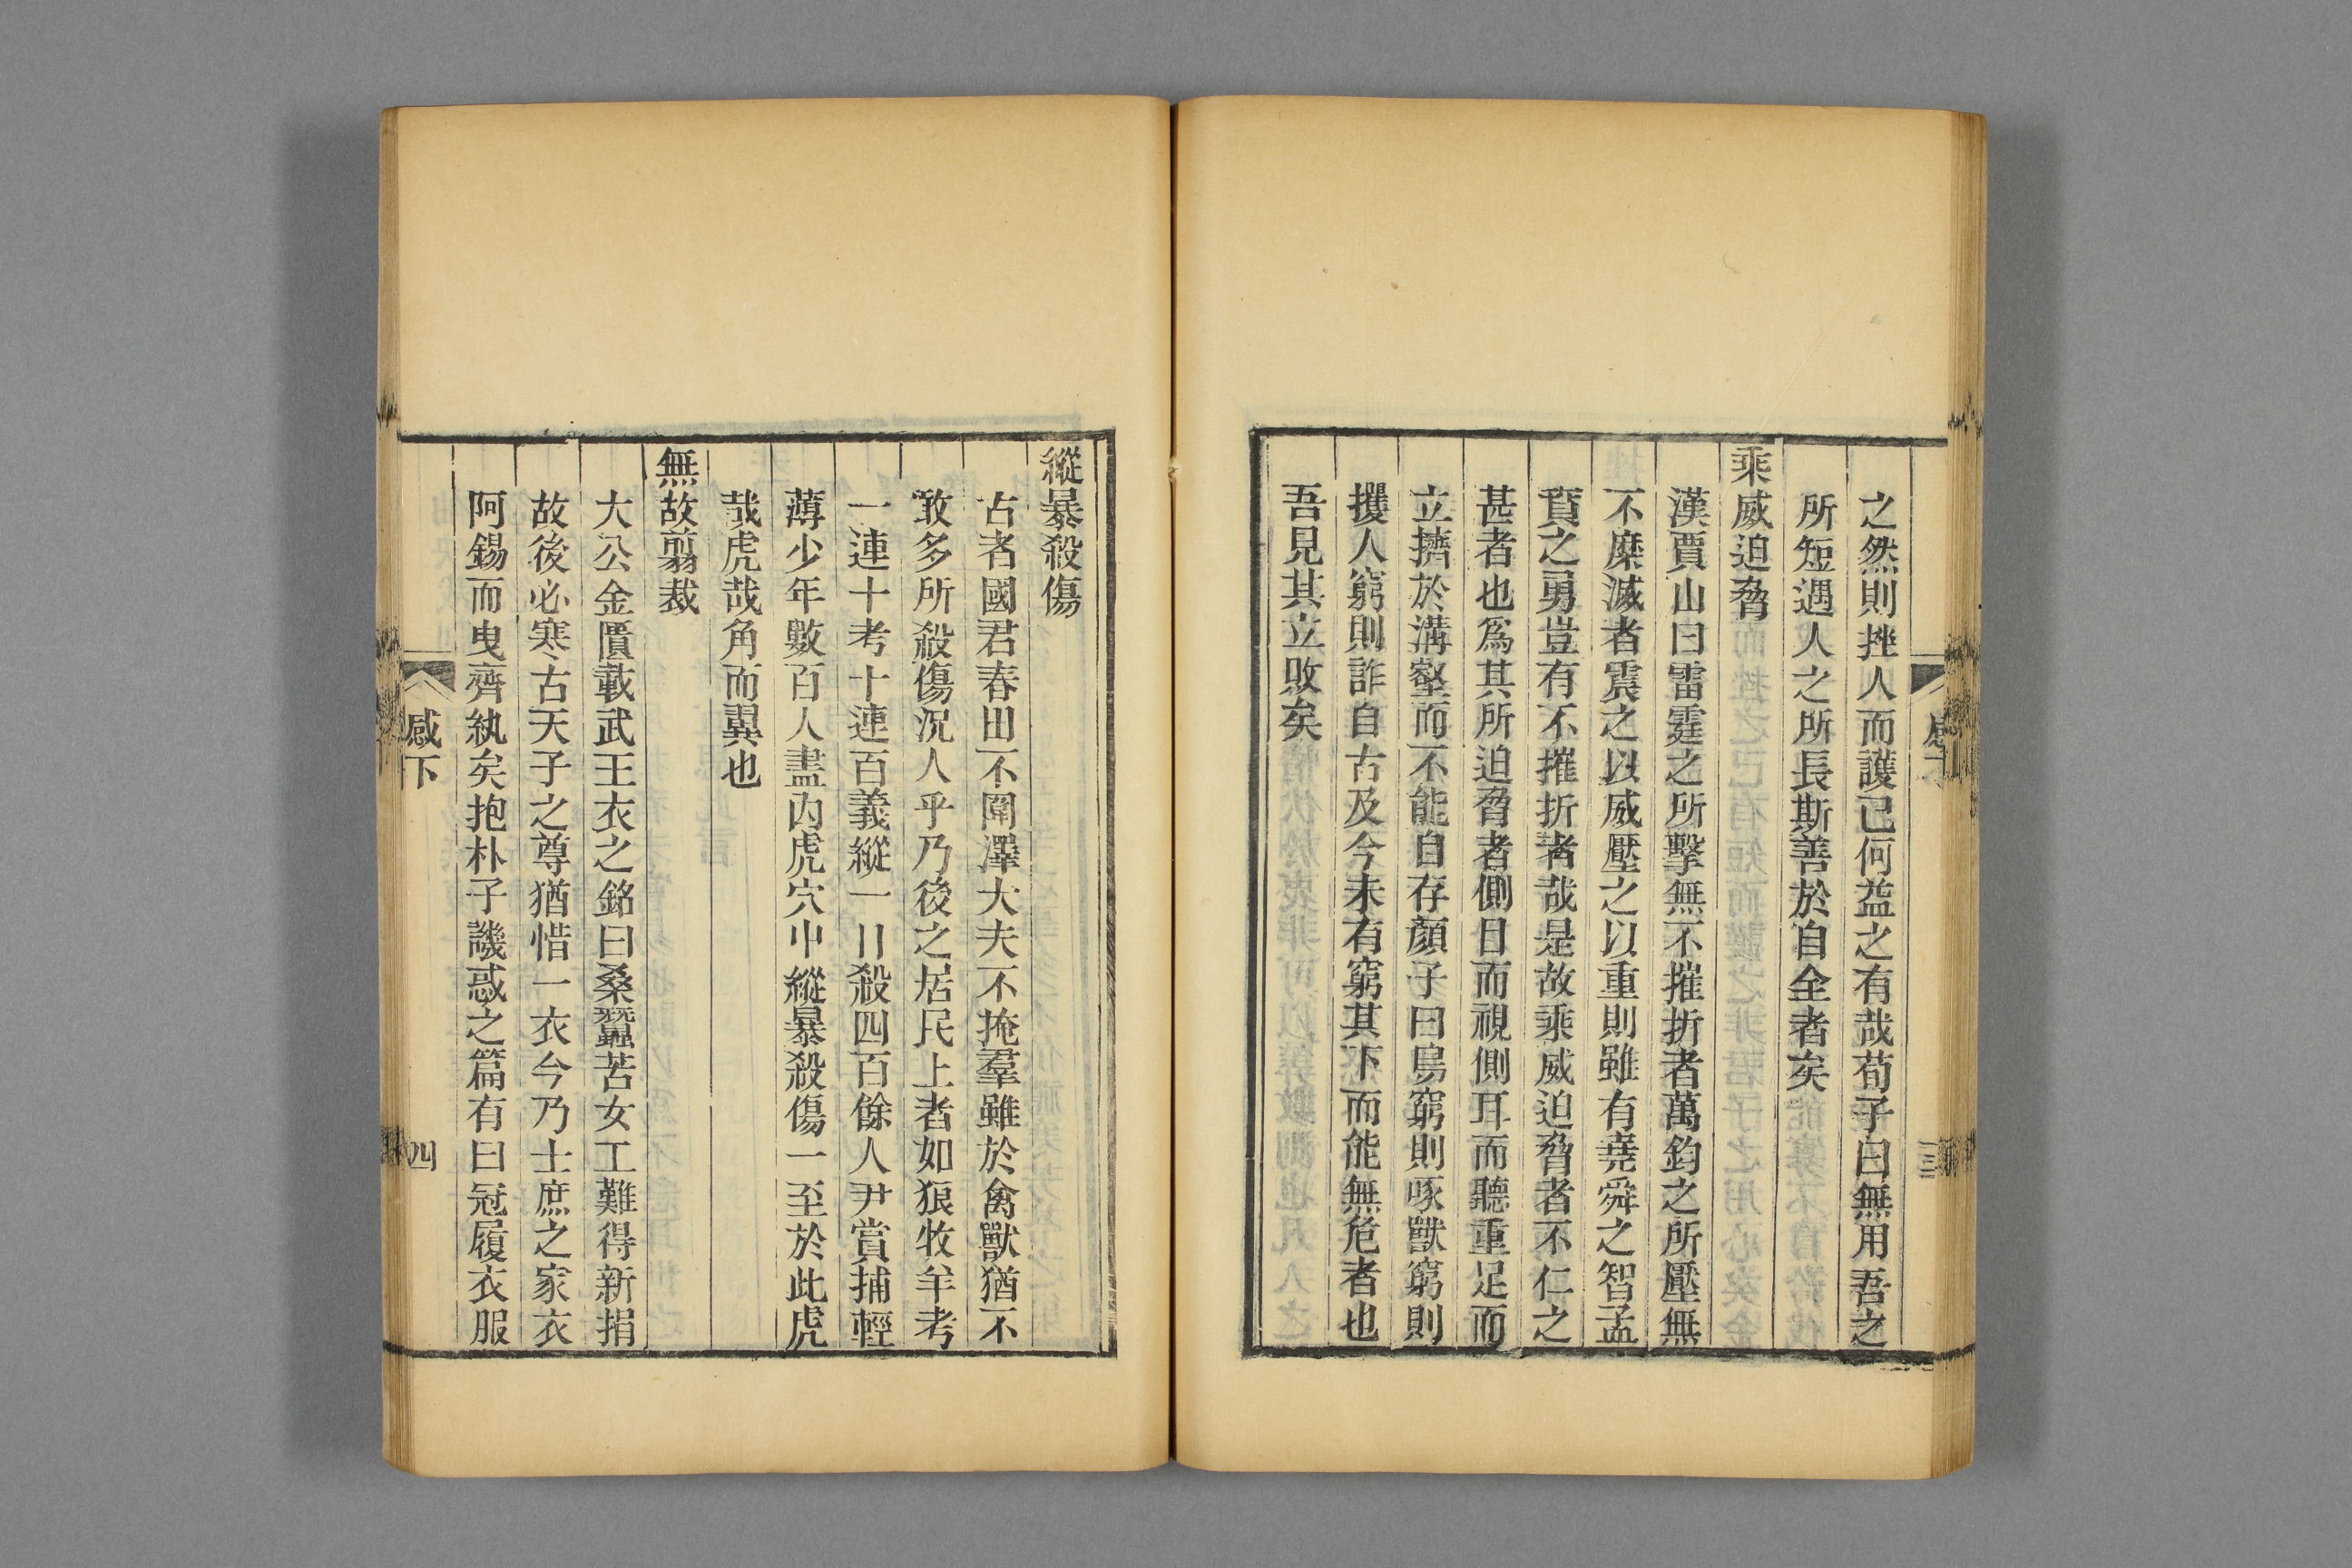 之然則挫人而護己何益之有哉荀子曰無用吾之
所短遇人之所長斯善於自全者矣
乘威迫脅
漢賈山曰雷霆之所擊無不摧折者萬鈞之所壓無
不糜滅者震之以威壓之以重則雖有堯舜之智孟
賁之勇豈有不摧折者哉是故乘威迫脅者不仁之
甚者也爲其所迫脅者側目而視側耳而聽重足而
立擠於溝壑而不能自存顏子曰鳥窮則啄獸窮則
攫人窮則詐自古及今未有窮其下而能無危者也
吾見其立敗矣
縱暴殺傷
古者國君春田不圍澤大夫不掩羣雖於禽獸猶不
敢多所殺傷況人乎乃後之居民上者如狼牧羊考
一連十考十連百義縱一日殺四百餘人尹賞捕輕
薄少年數百人盡內虎穴中縱暴殺傷一至於此虎
哉虎哉角而翼也
無故剪裁
大公金匱載武王衣之銘曰桑蠶苦女工難得新捐
故後必寒古天子之尊猶惜一衣今乃士庶之家衣
阿錫而曳齊紈矣抱朴子譏惑之篇有曰冠履衣服
感下
四